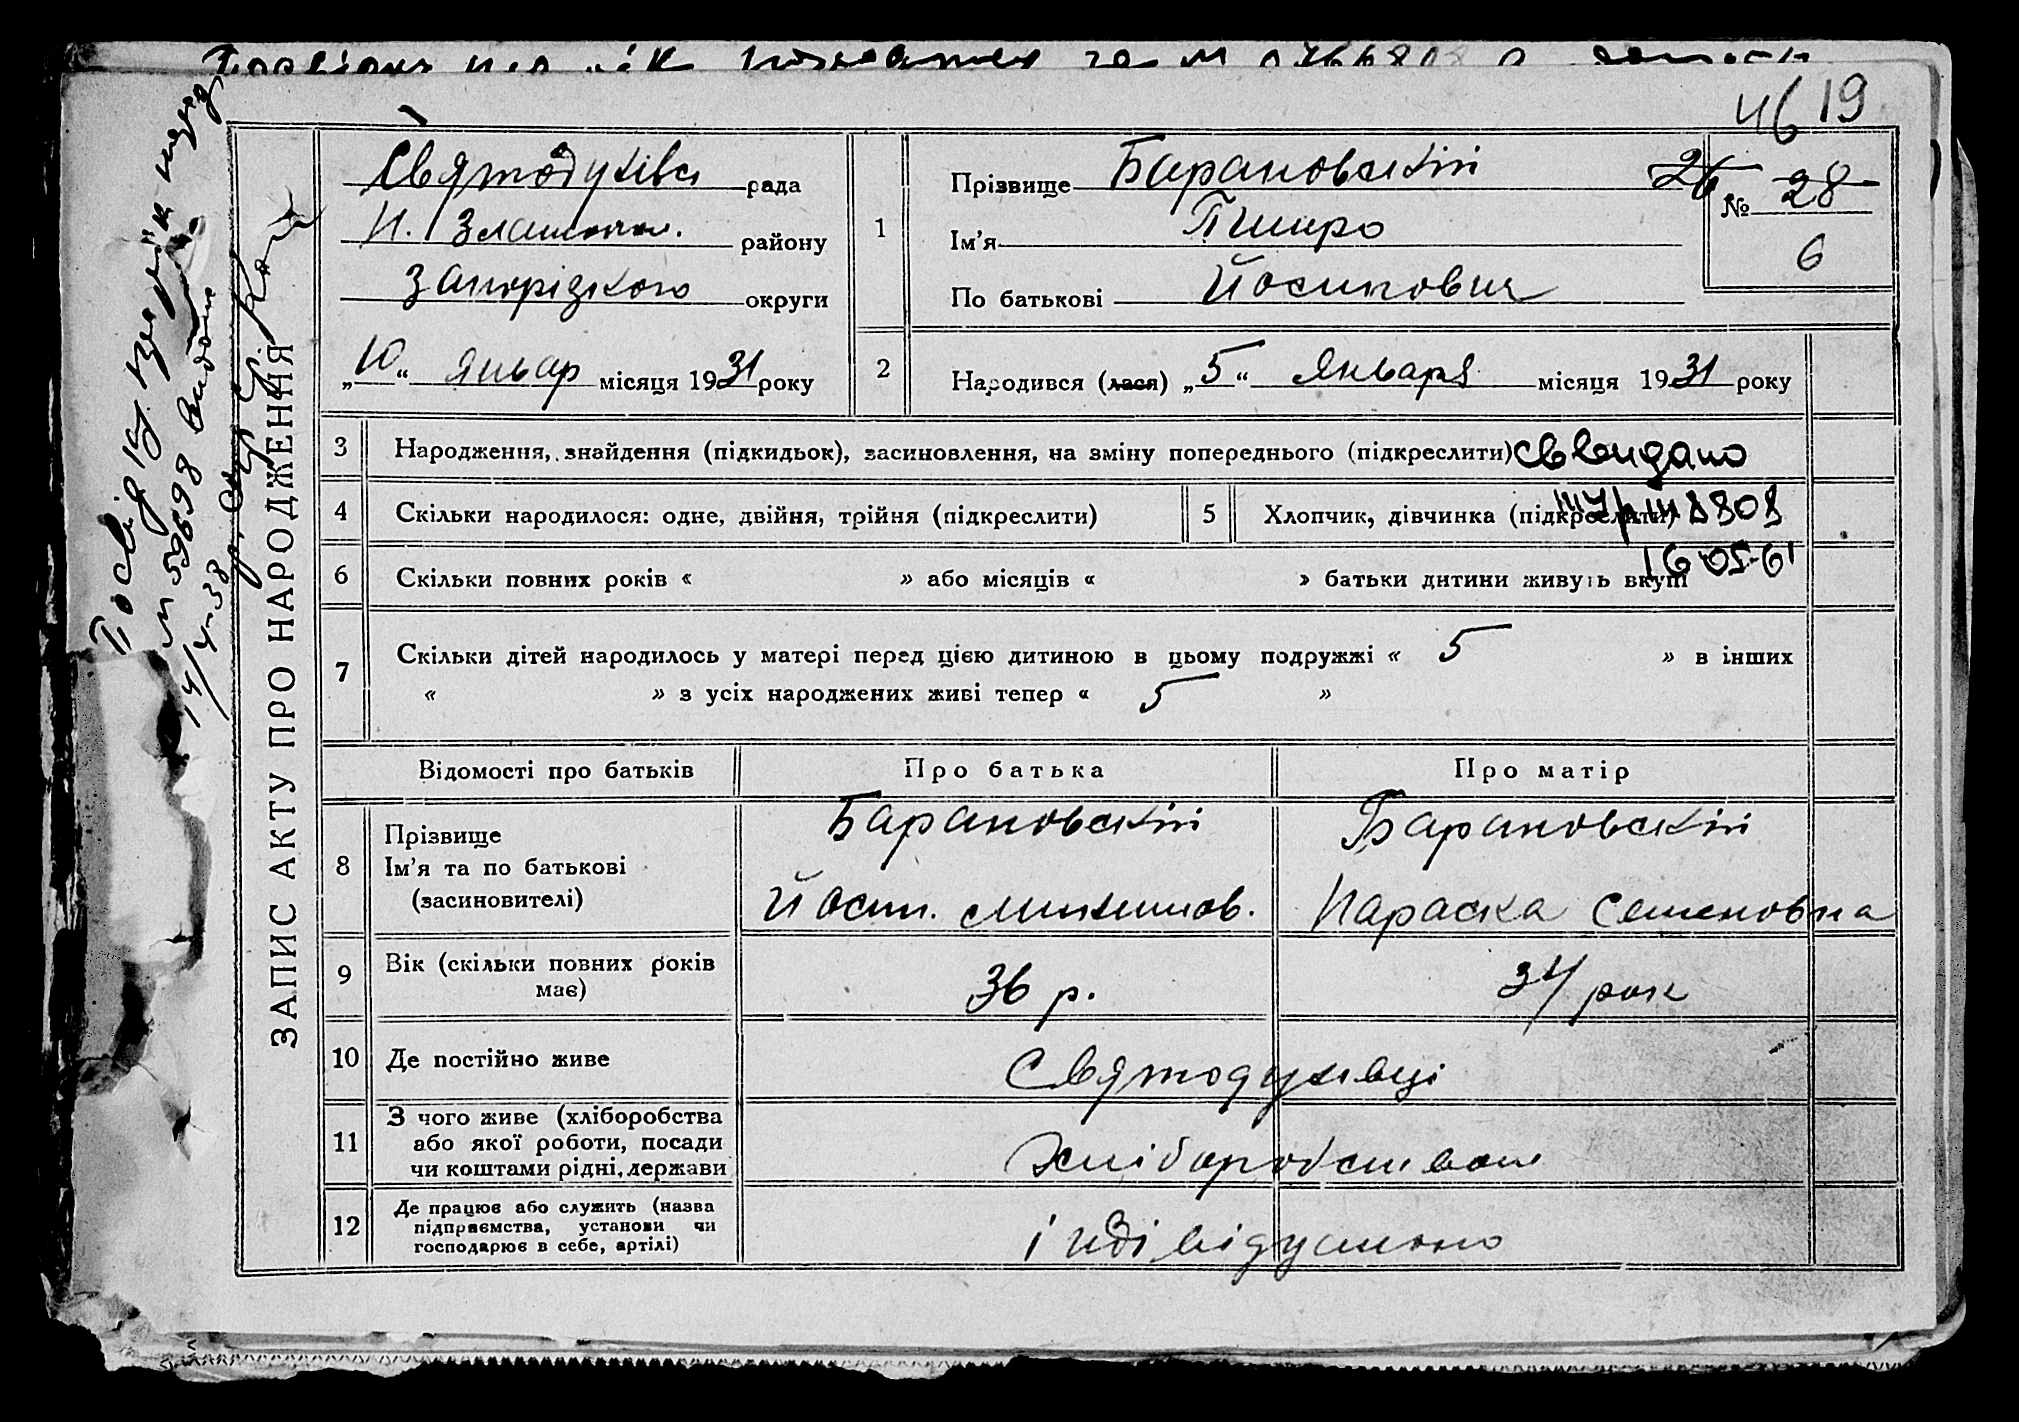 46 19
Святодухівс рада
Н. Златопол. району
Запорізкого округи
„10“ январ місяця 1931 року
1
Прізвище Барановскій
Ім’я
По батькові Йосипович
26 № 28
6
2
Народився (лася) „5“ Января місяця 1931 року
3 Народження, знайдення (підкидьок), засиновлення, на зміну попереднього (підкреслити)
Св видано
4 Скільки народилося: одне, двійня, трійня (підкреслити)
5 Хлопчик, дівчинка (підкреслити)
16-05-61
6 Скільки повних років « » або місяців « » батьки дитини живуть вкупі
7 Скільки дітей народилось у матері перед цією дитиною в цьому подружжі « 5 » в інших
« » з усіх народжених живі тепер « 5 »
Відомості про батьків Про батька Про матір
8 Прізвище
Ім’я та по батькові
(засиновителі)
Барановскій
Йосип.
Барановскій
Параска Семеновна
9 Вік (скільки повних років
має)
36 р.
34 рок
10 Де постійно живе
Святодухівці
11 З чого живе (хліборобства
або якої роботи, посади
чи коштами рідні, держави
Хліборобством
12 Де працює або служить (назва
підприємства, установи чи
господарює в себе, артілі)
індівідуально
ЗАПИС АКТУ ПРО НАРОДЖЕННЯ